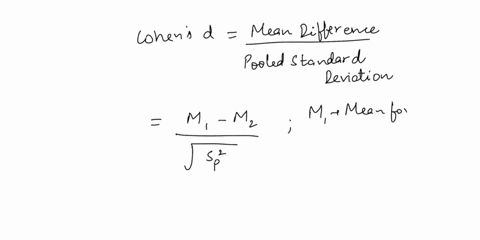 Cohen's d = Mean Difference
Pooled Standard
Deviation
= M₁ - M₂ ; M₁ → Mean for
√Sₚ²